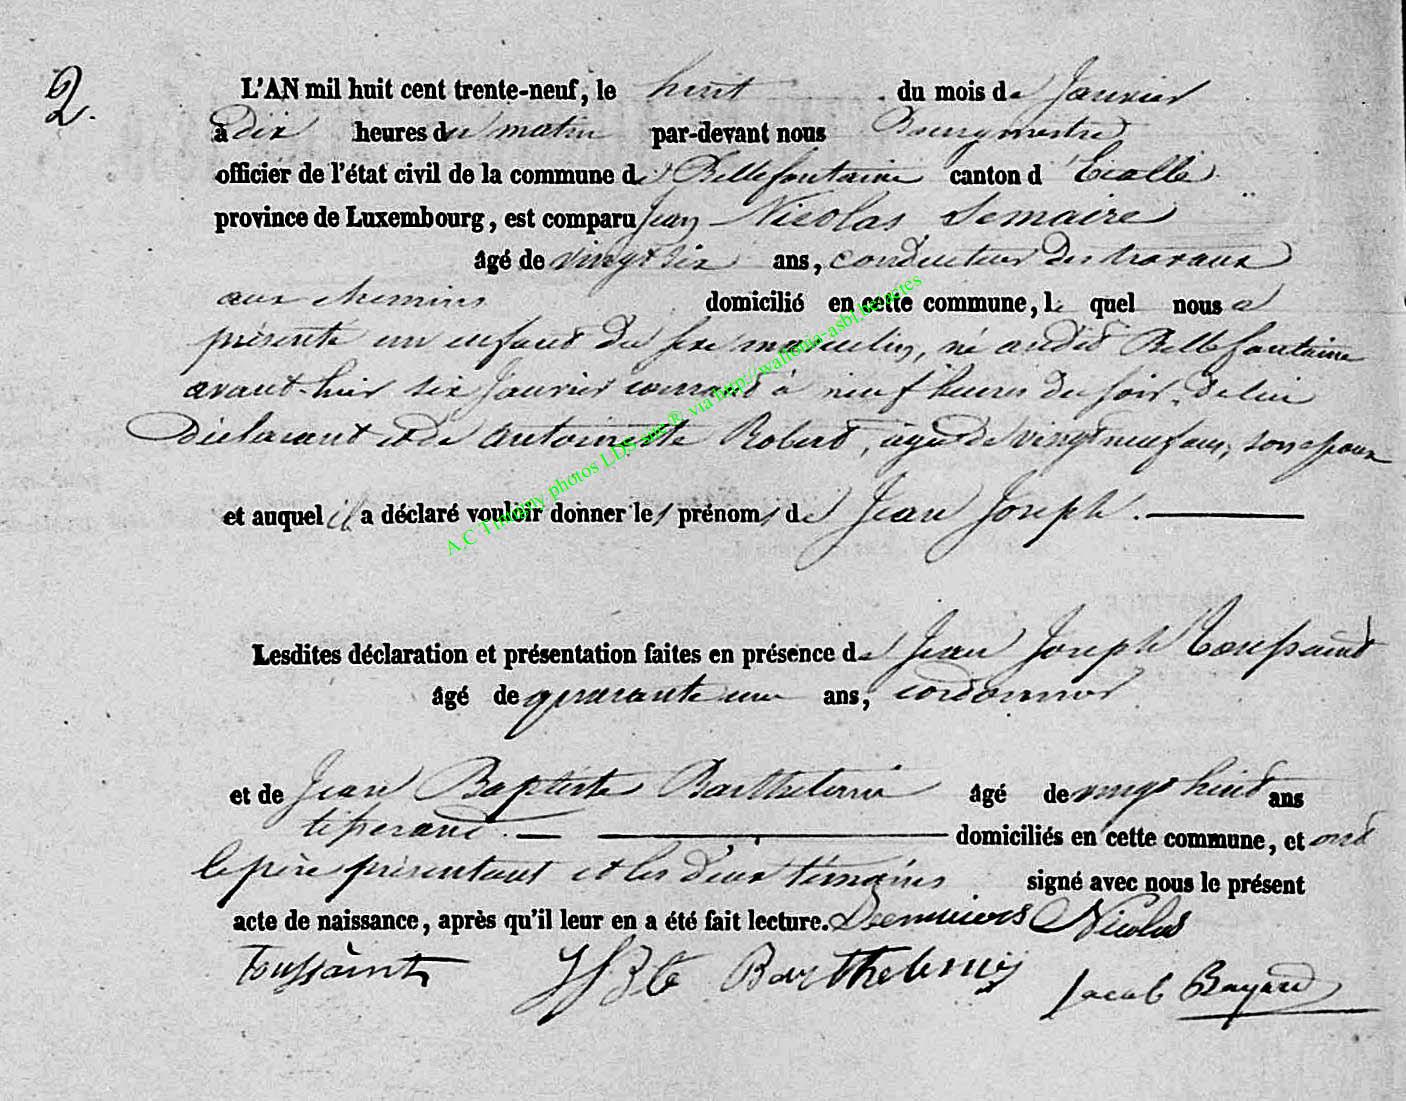 2.
L'AN mil huit cent trente-neuf, le huit du mois de Janvier
à dix heures du matin par-devant nous Bourgmestre
officier de l'état civil de la commune de Bellefontaine canton d'Etalle
province de Luxembourg, est comparu Jean Nicolas
âgé de vingt six ans, conducteur des travaux
aux chemins domicilié en cette commune, le quel nous a
présenté un enfant du sexe masculin, né audit Bellefontaine
avant-hier six Janvier courant à neuf heures du soir, de lui
Déclarant et de Antoinette Robert, agée de vingt neuf ans, son epouse
et auquel il a déclaré vouloir donner les prénoms de Jean Joseph.
Lesdites déclaration et présentation faites en présence de Jean Joseph Toussaint
âgé de quarante un ans, cordonnier
et de Jean Baptiste Barthelemi âgé de vingt huit ans
tisserand. domiciliés en cette commune, et ont
le père présentant et les deux témoins signé avec nous le présent
acte de naissance, après qu'il leur en a été fait lecture. Nicolas
Toussaint JJBte Barthelemij Jacob Bayard
A.C Tintigny photos LDS sur ® via http://wallonia-asbl.be/actes